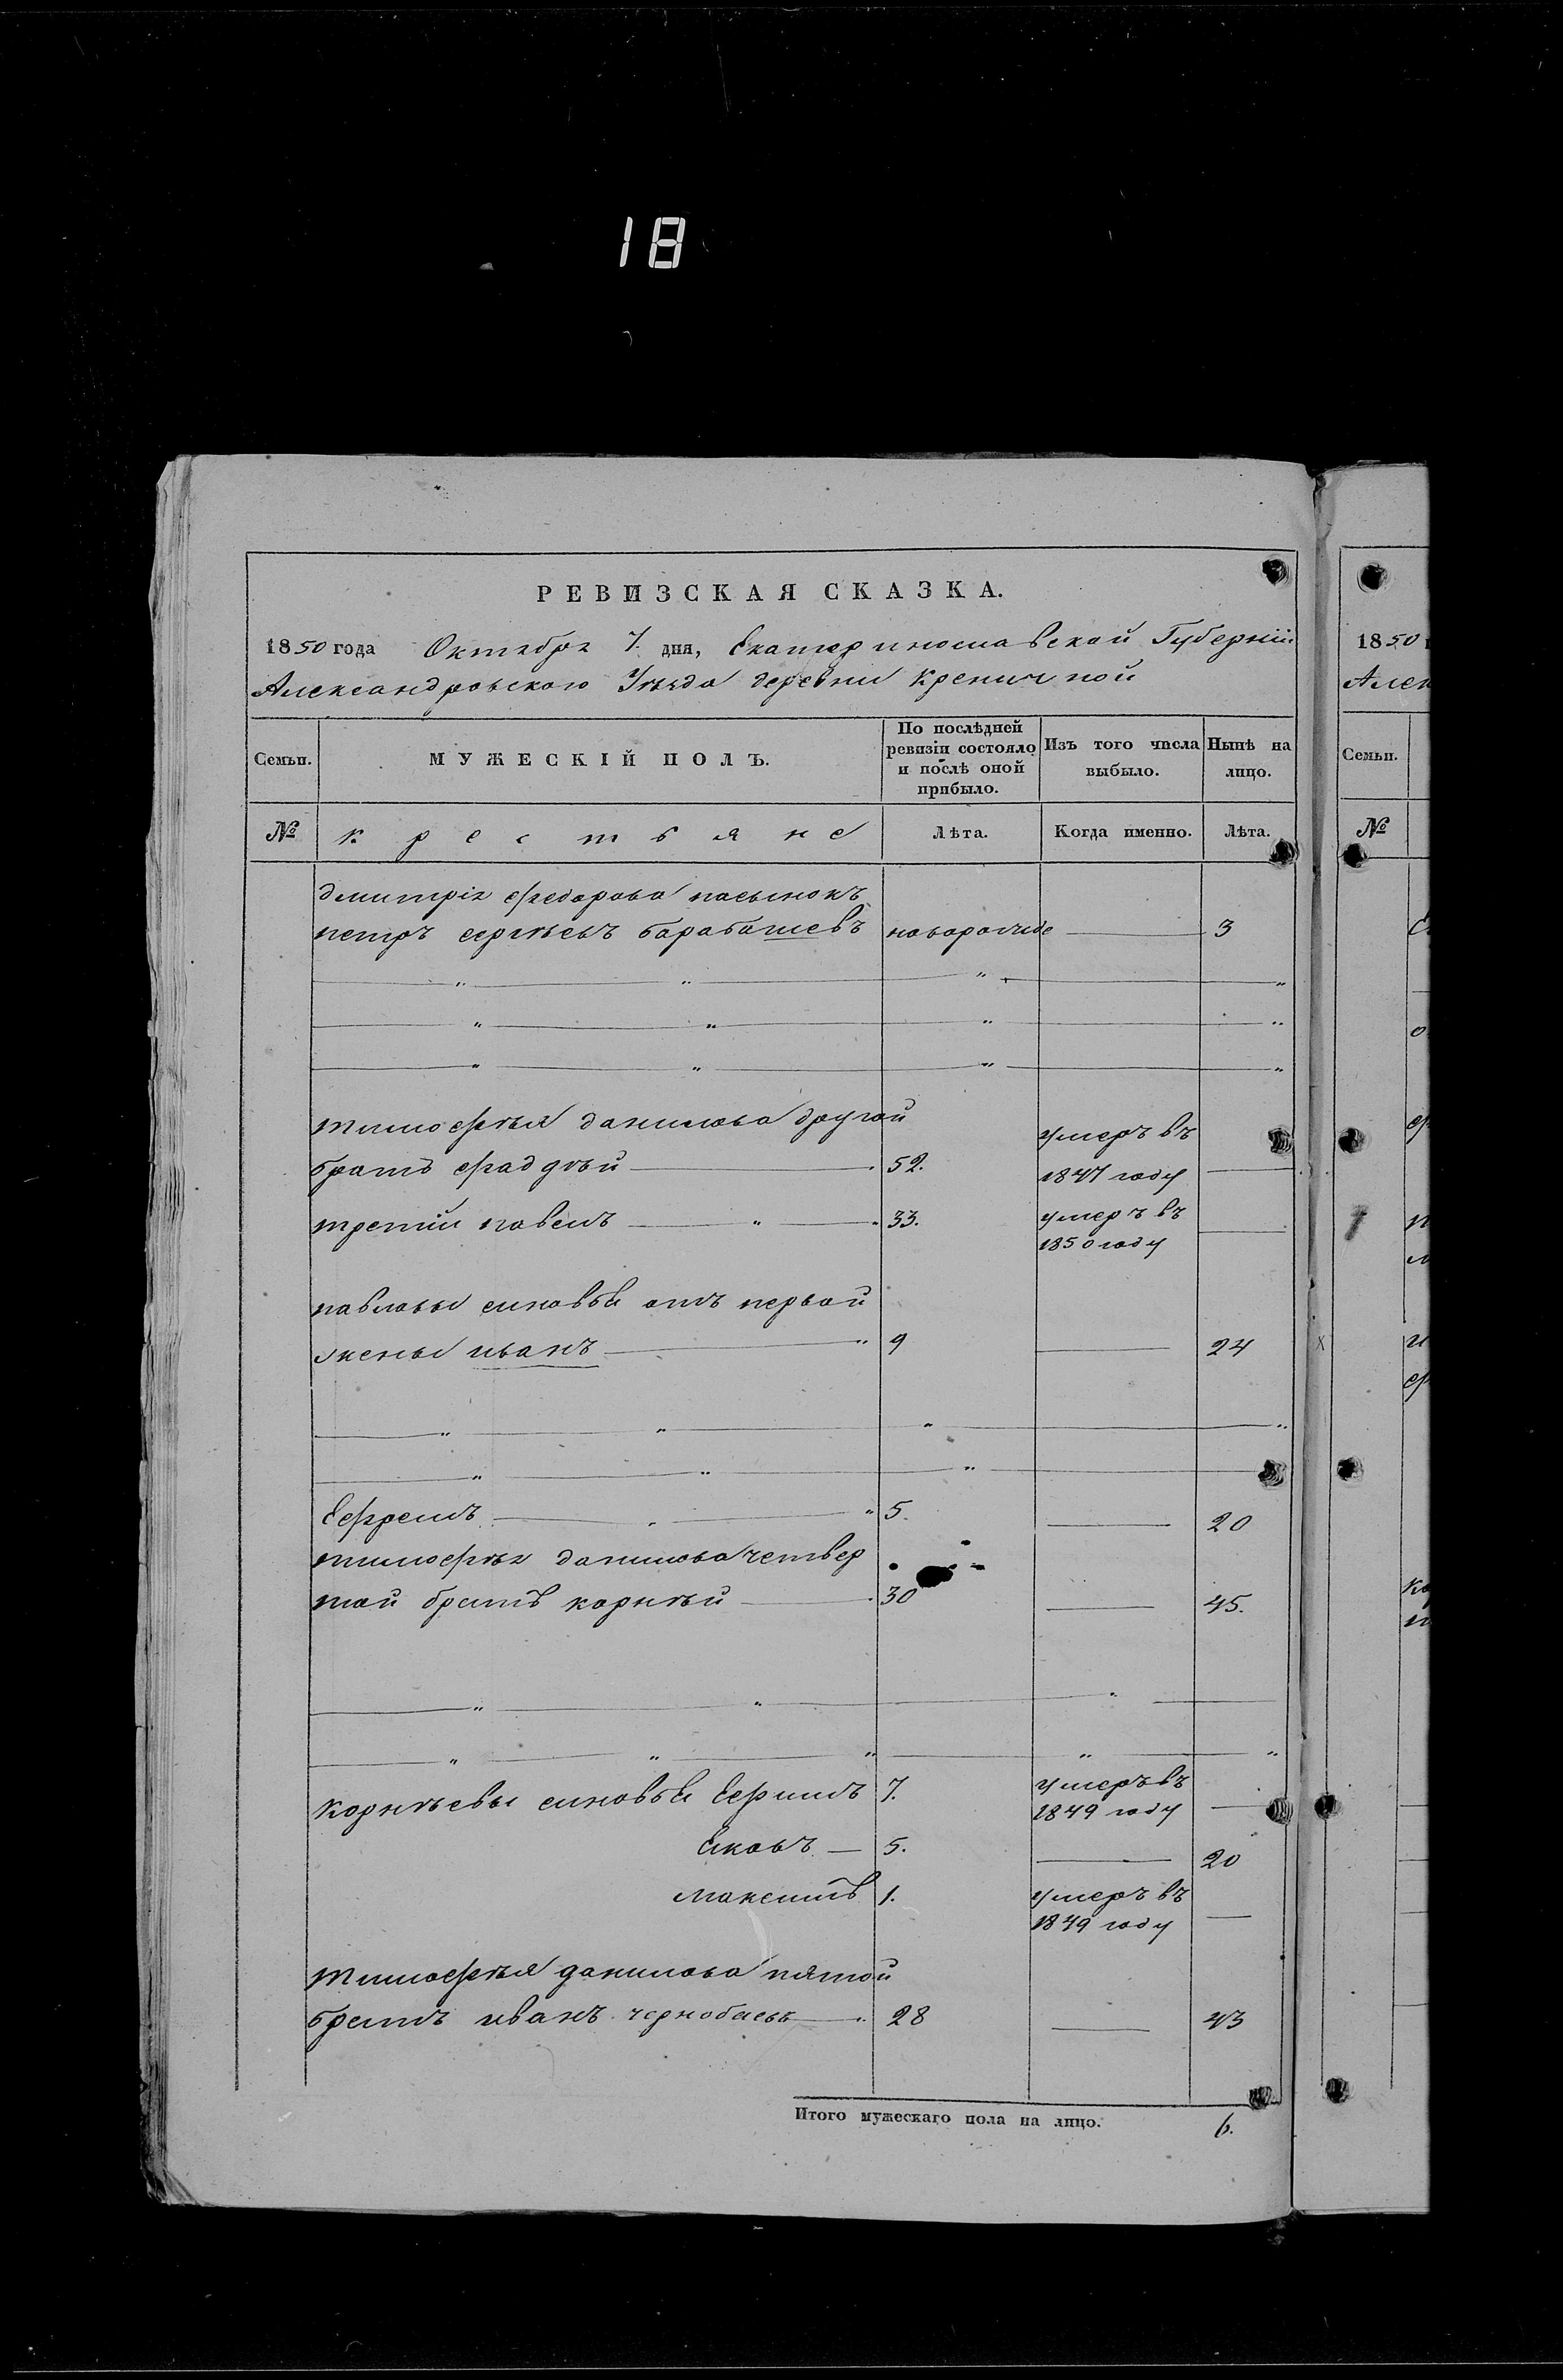 18
РЕВИЗСКАЯ СКАЗКА.
1850 года Октября 7. дня, Екатериносла вской Губерніи
Александровского Уѣзда деревни Креничной
Семьи.
МУЖЕСКІЙ ПОЛЪ.
По послѣдней ревизіи состояло и послѣ оной прибыло.
Изъ того числа выбыло.
Нынѣ на лицо.
№ крестьяне Лѣта. Когда именно. Лѣта.
дмитрія федорова пасынокъ
петръ сергѣевъ барабашевъ новорожде 3
тимофѣя данилова другой
братъ фаддѣй 52. умеръ въ 1847 году
третій павелъ 33. умеръ въ 1850 году
павловы сыновья отъ первой
жены иванъ 9 24
Ефремъ 5. 20
тимофѣя данилова четвер
той братъ корнѣй 30 45.
Корнѣевы сыновья Ефимъ 7. умеръ въ 1849 году
Яковъ 5. 20
Максимъ 1. умеръ въ 1849 году
тимофѣя данилова пятой
братъ иванъ 28 43
Итого мужескаго пола на лицо. 6.
1850
Алек
Семьи.
№